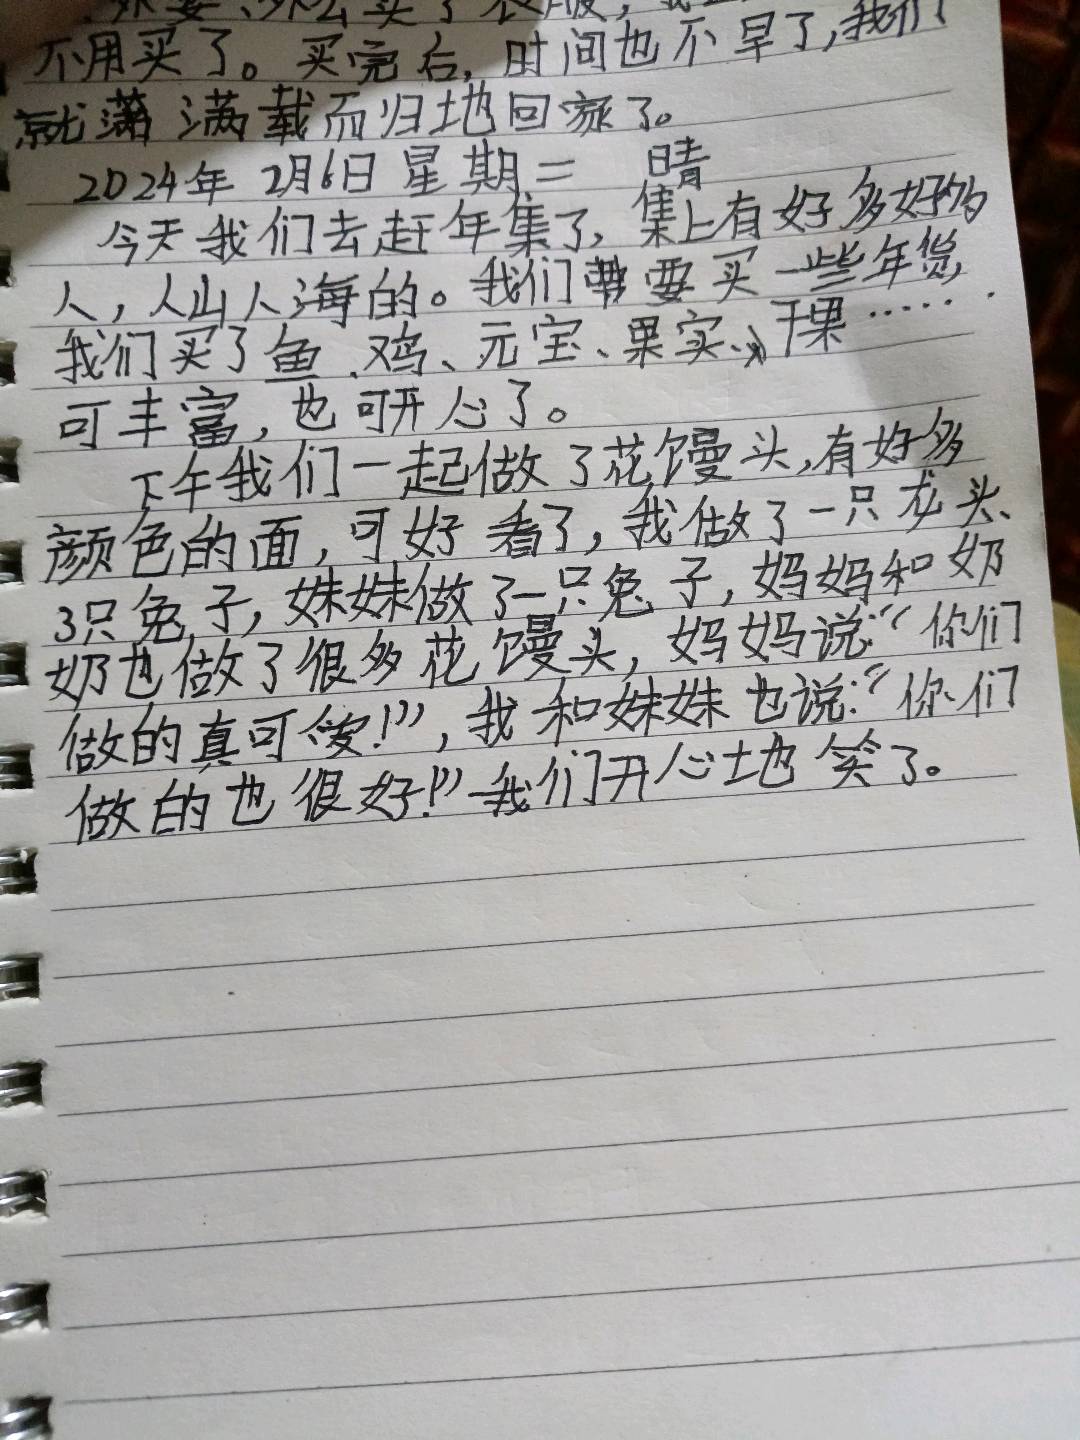 外婆、外公买了衣服，我
不用买了。买完后，时间也不早了，我们
就满满载而归地回家了。
2024年 2月6日 星期二 晴
今天我们去赶年集了，集上有好多好多
人，人山人海的。我们要买一些年货，
我们买了鱼、鸡、元宝、果实、干果……
可丰富，也可开心了。
下午我们一起做了花馒头，有好多
颜色的面，可好看了，我做了一只龙头、
3只兔子，妹妹做了一只兔子，妈妈和奶
奶也做了很多花馒头，妈妈说：“你们
做的真可爱！”，我和妹妹也说：“你们
做的也很好！”我们开心地笑了。